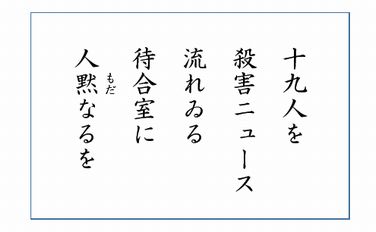 十九人を
殺害ニュース
流れゐる
待合室に
人黙なるを
もだ